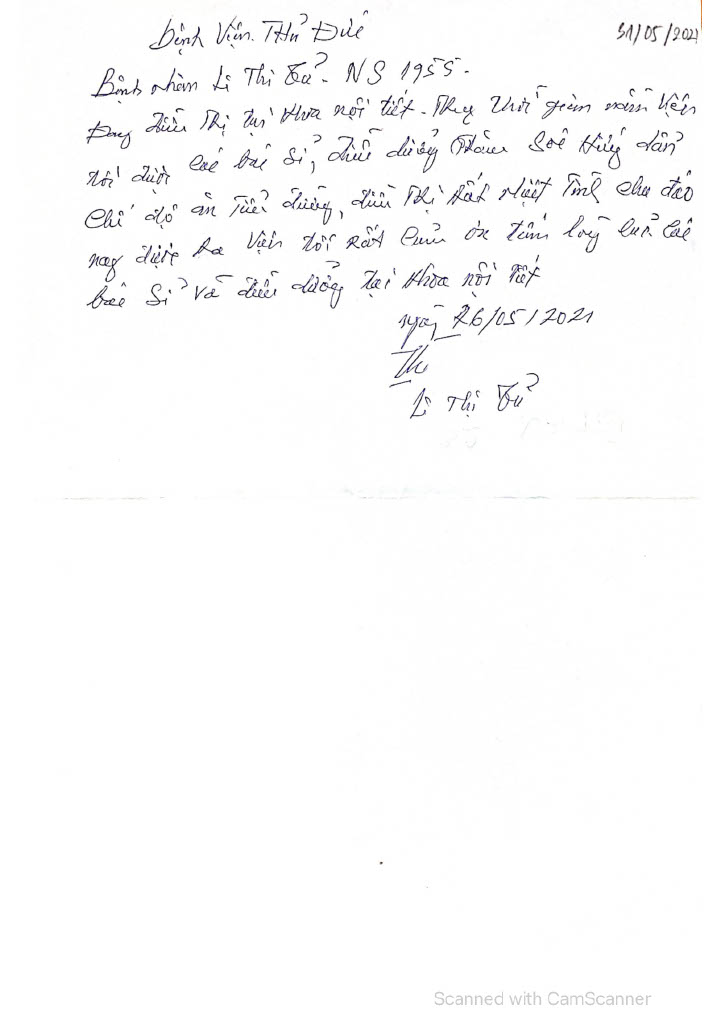 Bệnh Viện Thủ Đức
31/05/2021
Bệnh nhân Lê Thị Tư. NS 1955.
Đang điều Trị tại Khoa nội tiết. Trong thời gian nằm Viện
tôi được các bác Sỉ, điều dưỡng thăm Soé Hướng dẫn
Chế độ ăn Tiểu đường, điều Trị rất nhiệt Tình chu đáo
nay được ra Viện tôi rất cảm ơn tấm lòng của các
bác Sỉ và điều dưỡng tại Khoa nội tiết
ngày 26/05/2021
Lê Thị
Scanned with CamScanner